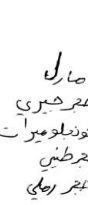 مارل
حجر جيري
كونجلوميرات
حجر طيني
حجر رملي